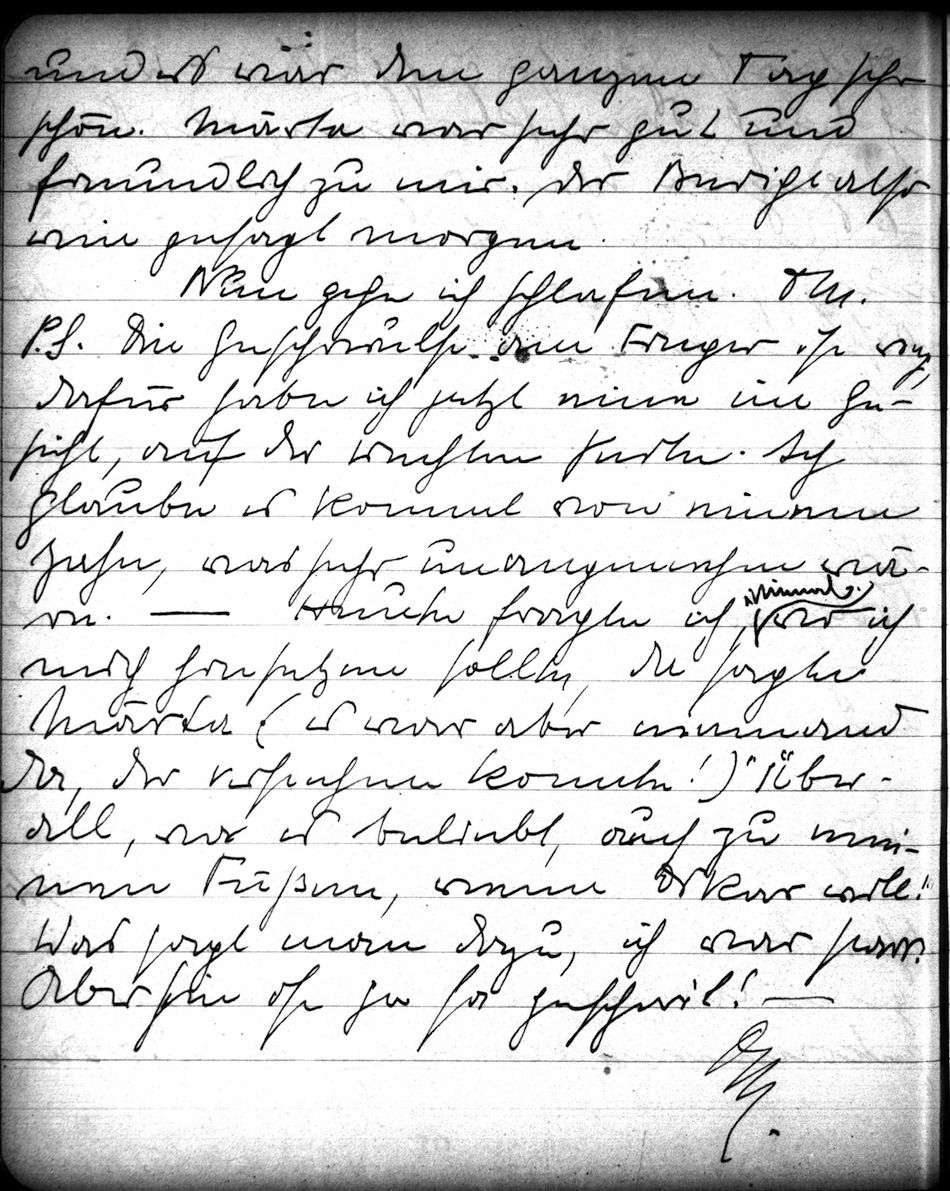 und es war den ganzen Tag sehr
schön. Märta war sehr gut und
freundlich zu mir. Der Bericht also
wie gesagt morgen.
Nun gehe ich schlafen.
P.S. Die Geschwulst am Finger ist weg,
dafür habe ich jetzt eine im Ge-
sicht, auf der rechten Seite. Ich
glaube es kommt von einem
Zahn, was sehr unangenehm wä-
re. — Heute fragte ich, wo ich
mich hinsetzen sollte, da sagte
Märta (es war aber niemand
da, der verstehen konnte!) "Über-
all, wo es beliebt, auch zu mei-
nen Füßen, wenn Oskar will!"
Was sagt man dazu, ich war starr.
Aber sie ist ja so gescheit! —